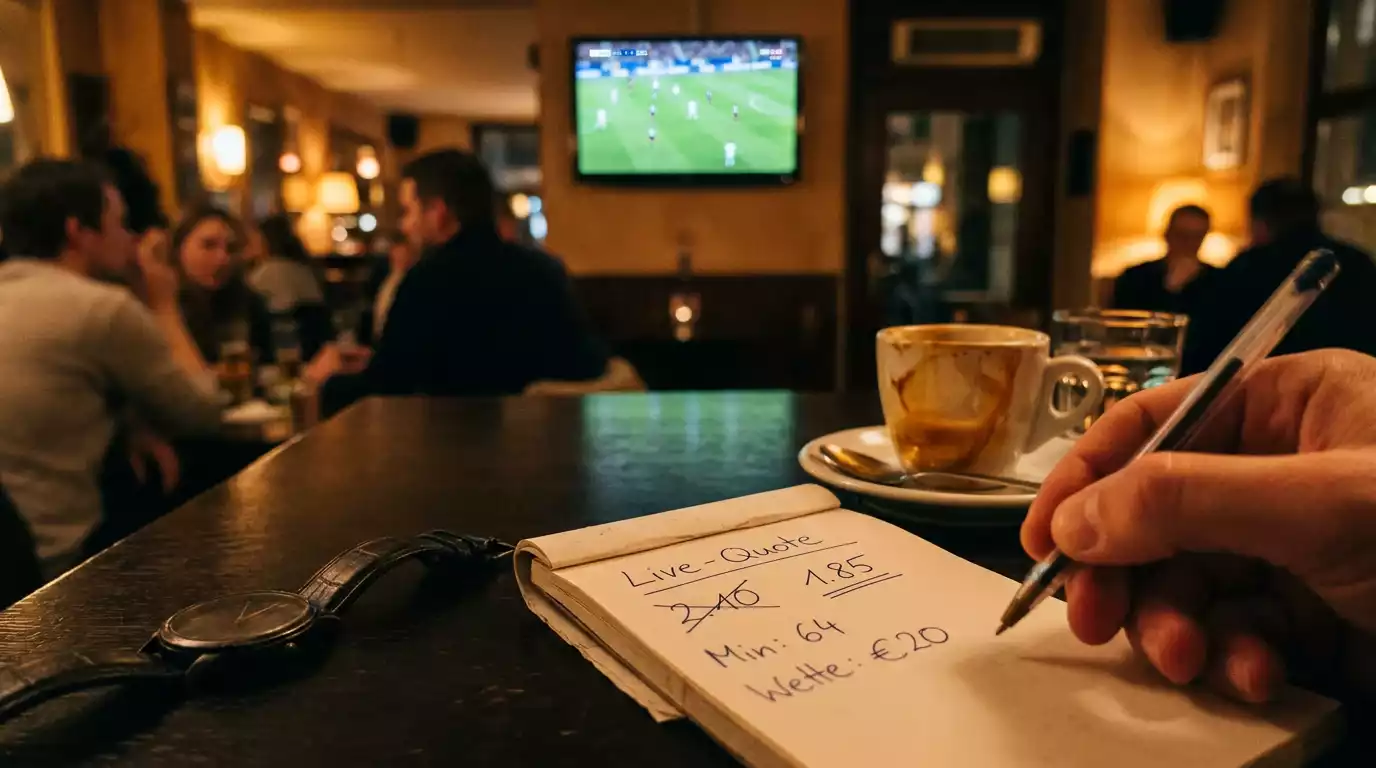 Live-Quote
2.10 1.85
Min: 64
Wette: €20